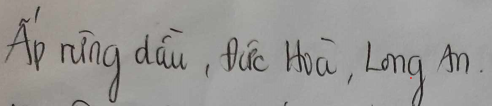 Ấp rừng dầu, Đức Hoà, Long An.